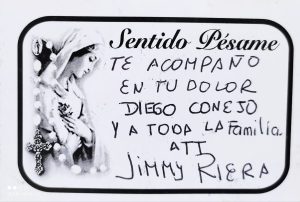 Sentido Pésame
TE ACOMPAÑO
EN TU DOLOR
DIEGO CONEJO
Y A TODA LA FamiliA
ATT
JIMMY RIERA